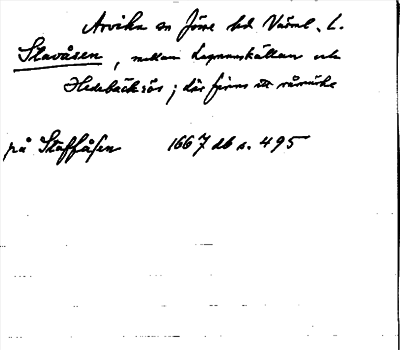 Arvika sn Jösse hd Värml. L.
Stavåsen, mellan Lagmanskällan och
Hedebäcksås; där finns ett råmärke
på Staffåsen 1667 db s. 495